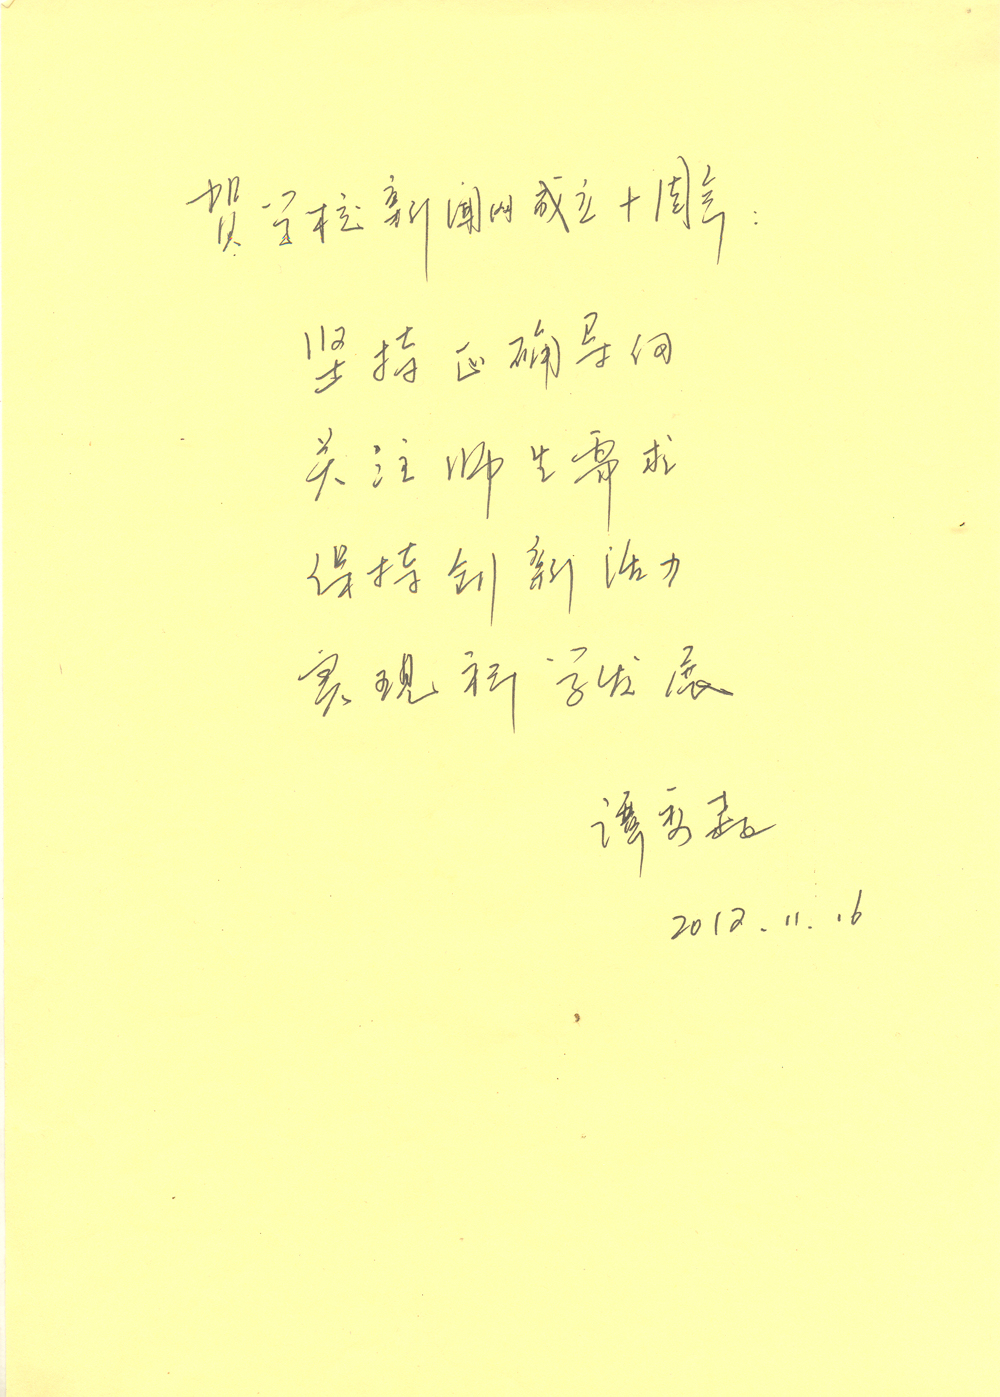 贺学校新闻网成立十周年：
坚持正确导向
关注师生需求
保持创新活力
实现科学发展
谭秀森
2012.11.16